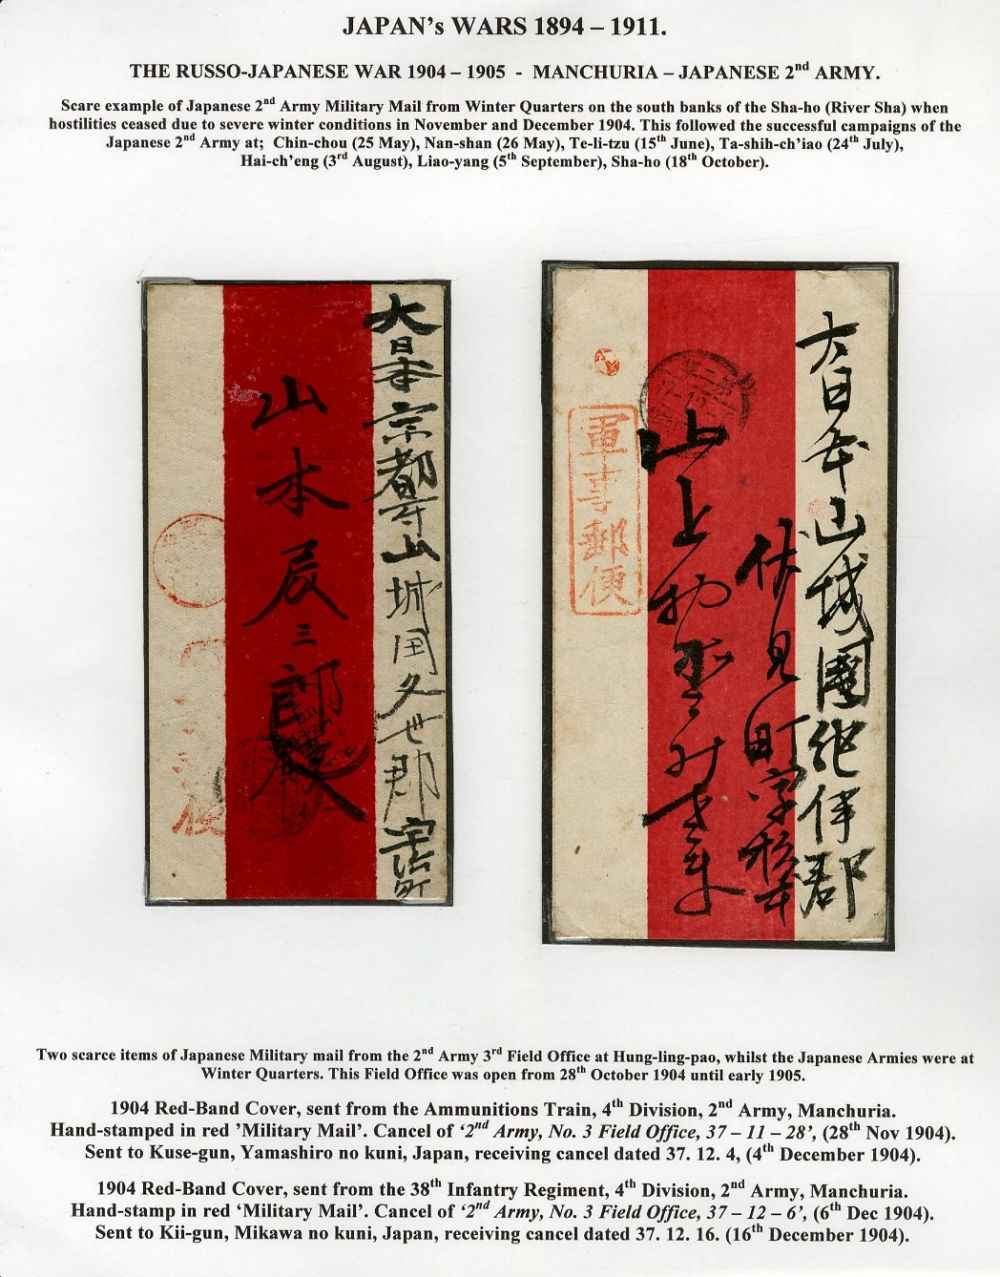 JAPAN's WARS 1894 – 1911.
THE RUSSO-JAPANESE WAR 1904 – 1905 - MANCHURIA – JAPANESE 2nd ARMY.
Scare example of Japanese 2nd Army Military Mail from Winter Quarters on the south banks of the Sha-ho (River Sha) when
hostilities ceased due to severe winter conditions in November and December 1904. This followed the successful campaigns of the
Japanese 2nd Army at; Chin-chou (25 May), Nan-shan (26 May), Te-li-tzu (15th June), Ta-shih-ch'iao (24th July),
Hai-ch'eng (3rd August), Liao-yang (5th September), Sha-ho (18th October).
大日本京都寺山城国久世郡宇治町
山本辰三郎殿
便
大日本山城國紀伊郡
伏見町字
山上
軍事郵便
Two scarce items of Japanese Military mail from the 2nd Army 3rd Field Office at Hung-ling-pao, whilst the Japanese Armies were at
Winter Quarters. This Field Office was open from 28th October 1904 until early 1905.
1904 Red-Band Cover, sent from the Ammunitions Train, 4th Division, 2nd Army, Manchuria.
Hand-stamped in red 'Military Mail'. Cancel of ‘2nd Army, No. 3 Field Office, 37 – 11 – 28’, (28th Nov 1904).
Sent to Kuse-gun, Yamashiro no kuni, Japan, receiving cancel dated 37. 12. 4, (4th December 1904).
1904 Red-Band Cover, sent from the 38th Infantry Regiment, 4th Division, 2nd Army, Manchuria.
Hand-stamp in red ‘Military Mail’. Cancel of ‘2nd Army, No. 3 Field Office, 37 – 12 – 6’, (6th Dec 1904).
Sent to Kii-gun, Mikawa no kuni, Japan, receiving cancel dated 37. 12. 16. (16th December 1904).